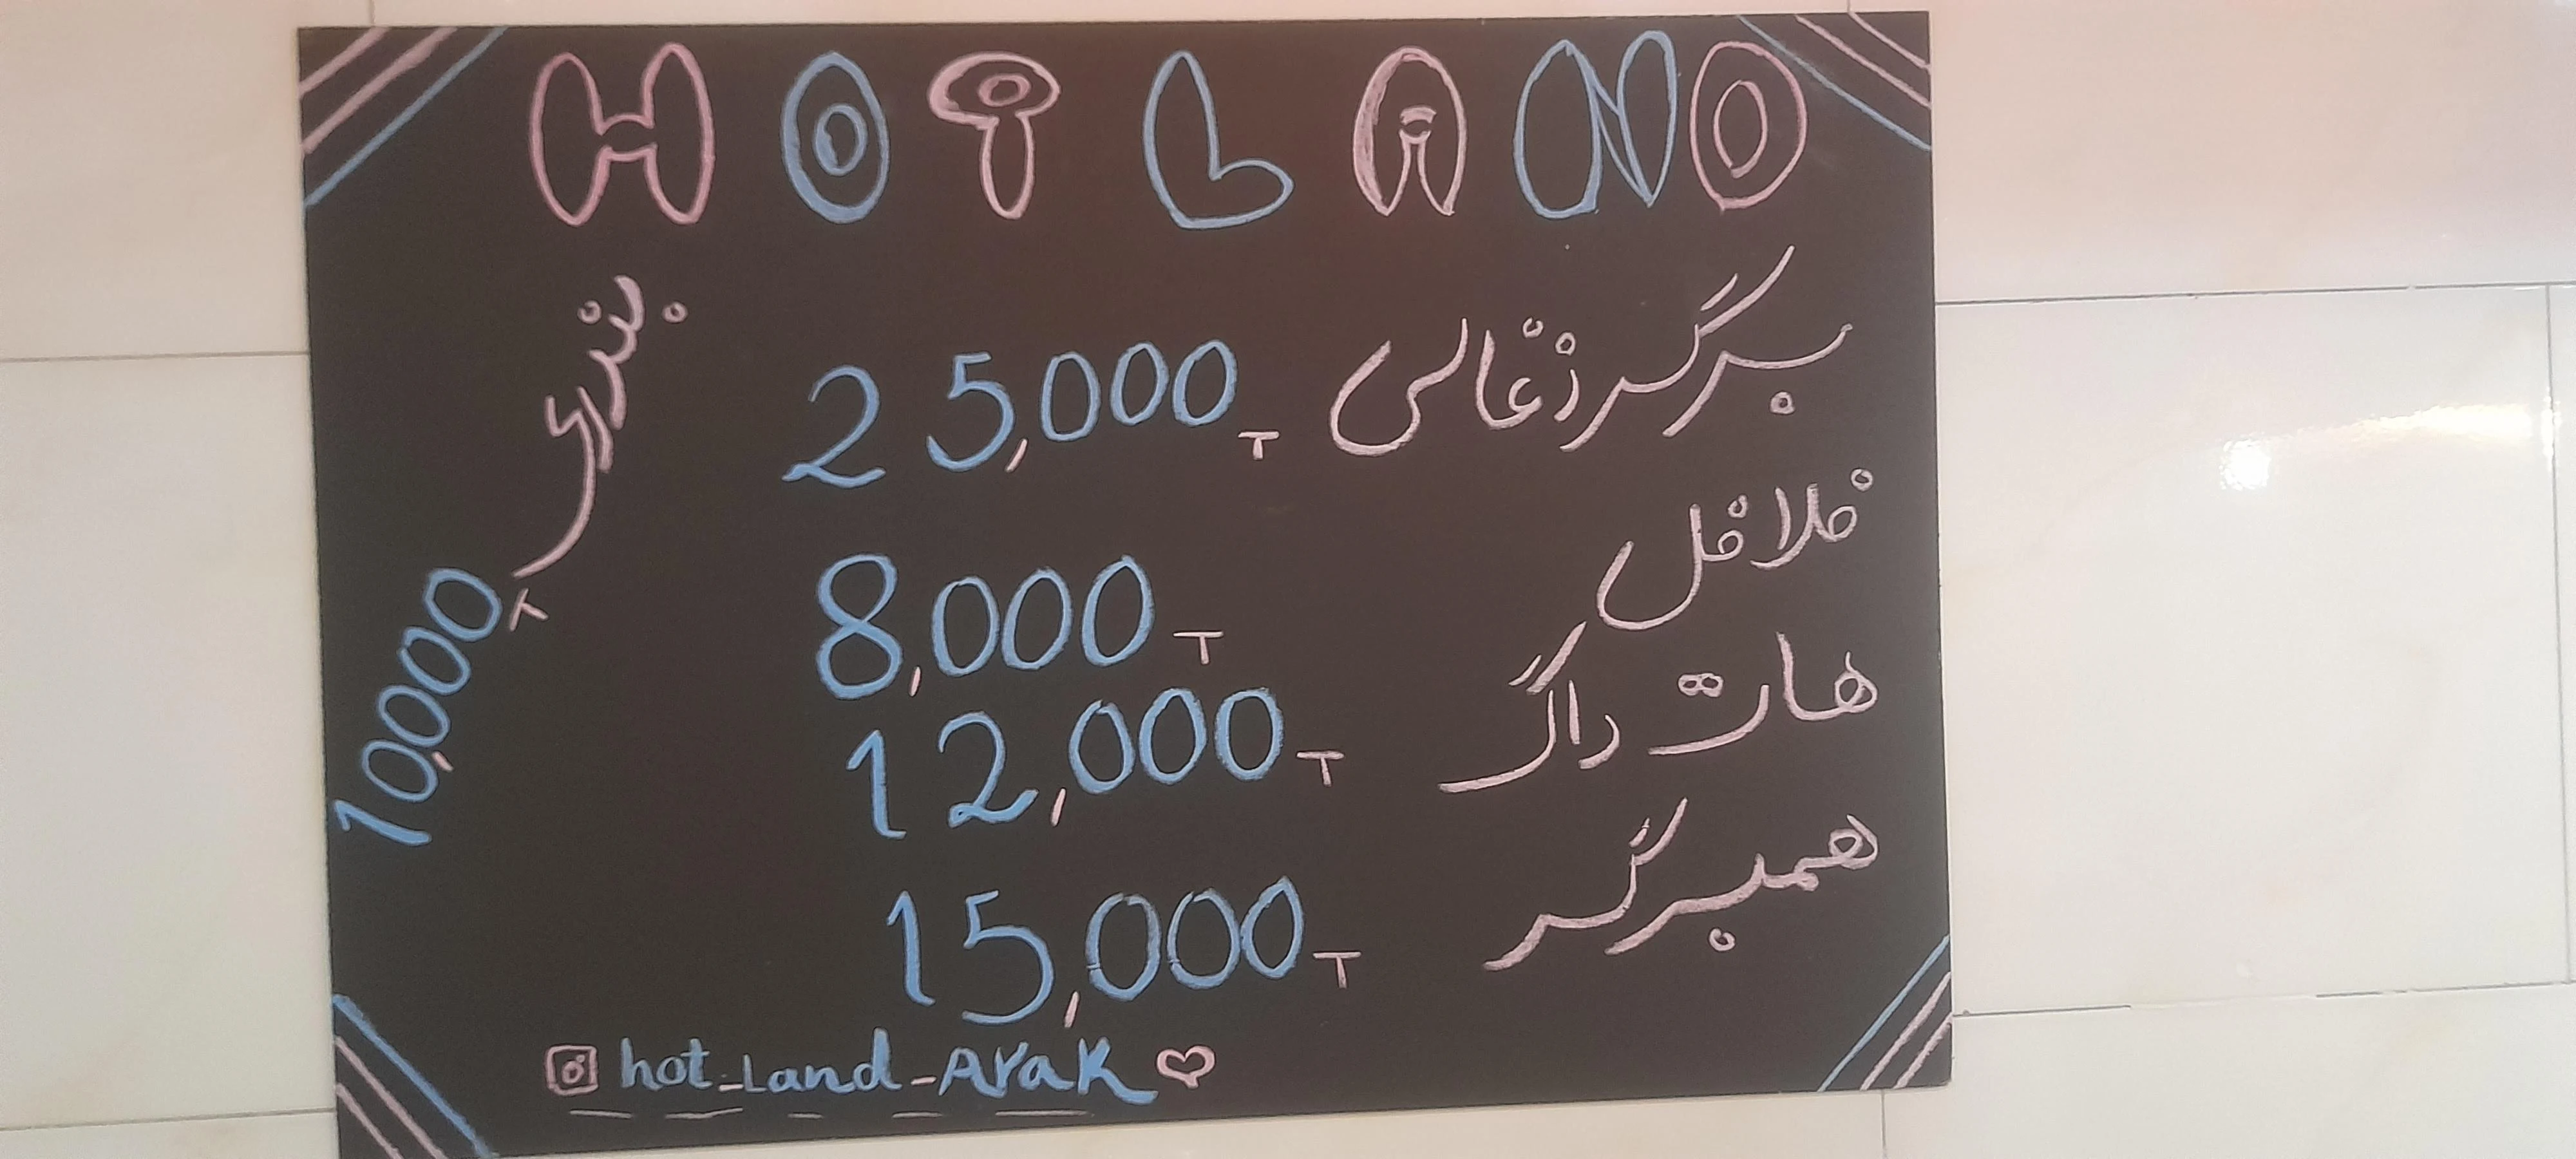 HOT LAND
برگر ذغالی 25,000 T
فلافل 8,000 T
هات داگ 12,000 T
همبرگر 15,000 T
بندری 10,000 T
hot_Land_Arak